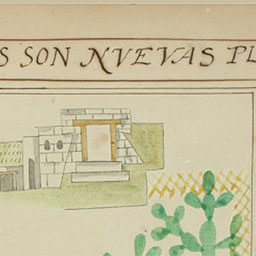 S SON NVEVAS PL